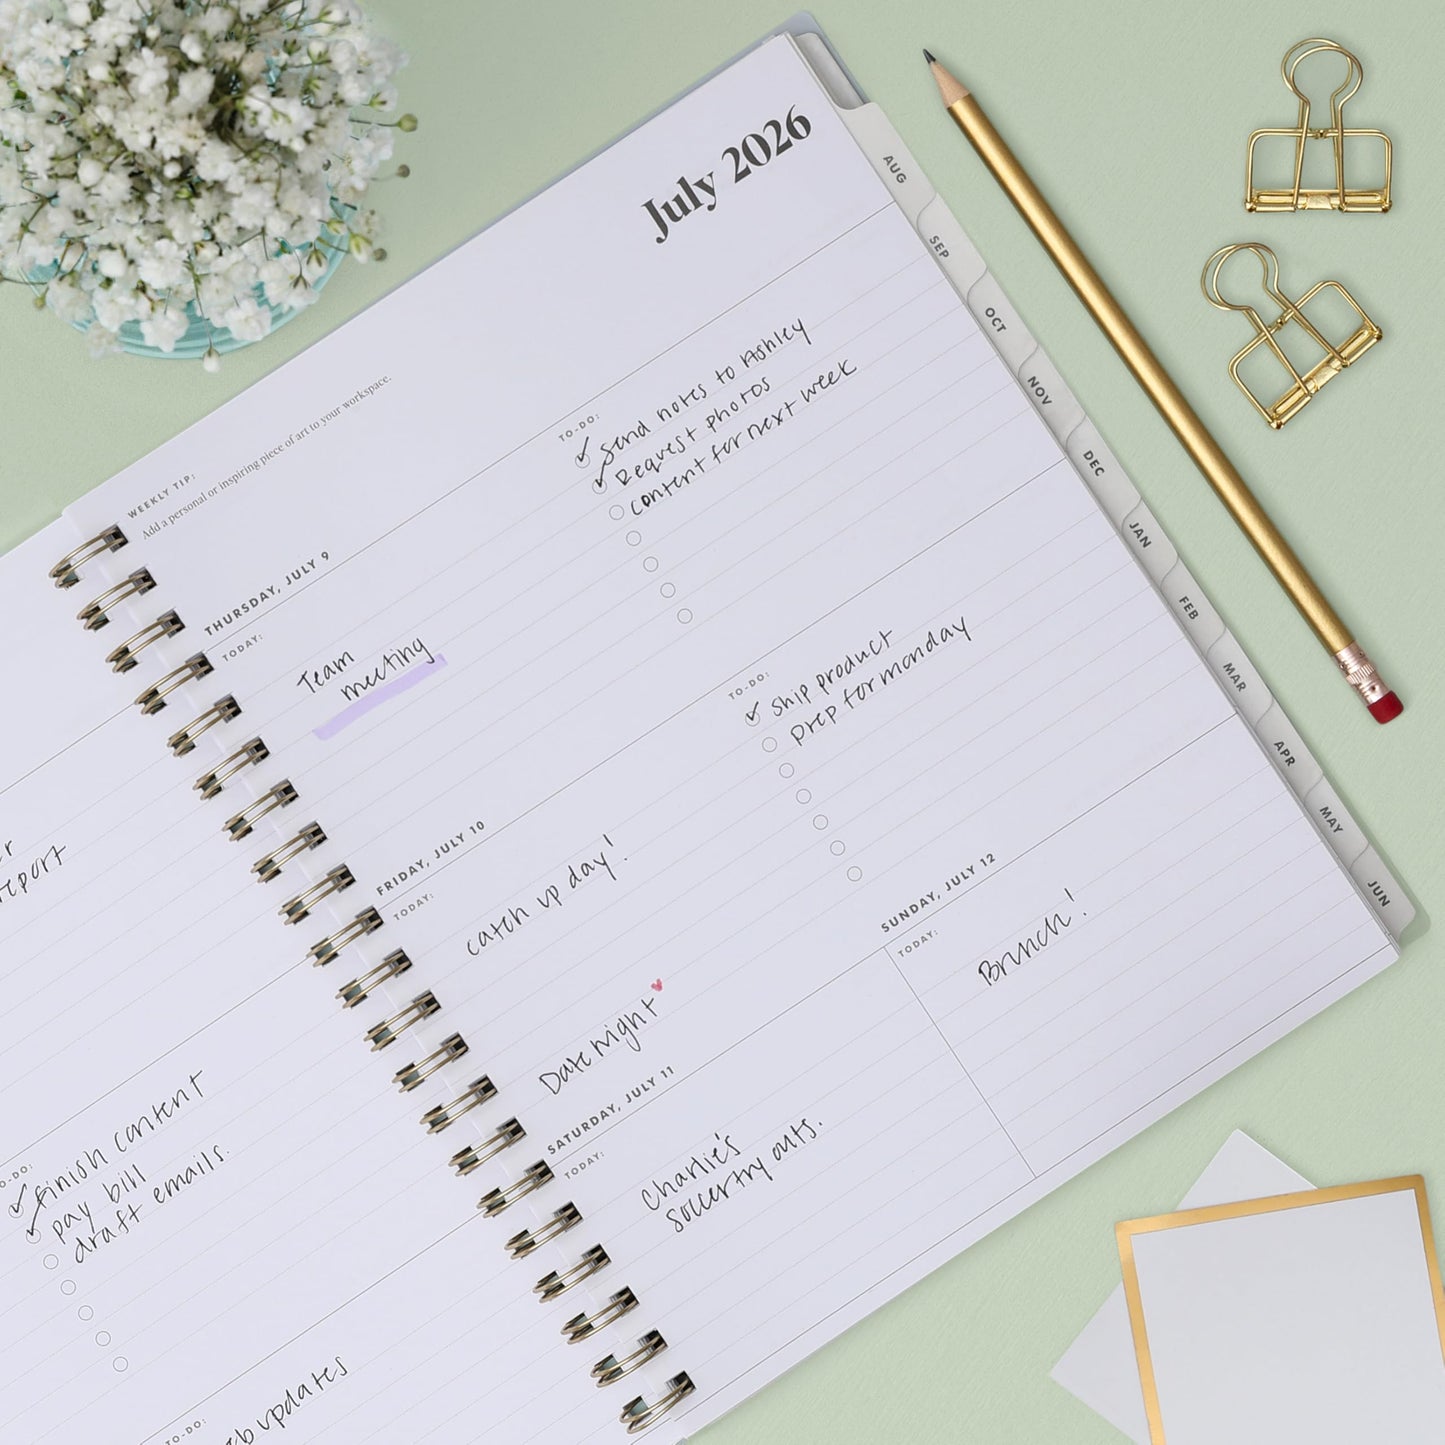 July 2026
WEEKLY TIP:
Add a personal or inspiring piece of art to your workspace.
THURSDAY, JULY 9
TODAY:
Team
meeting
TO-DO:
Send notes to Ashley
Request photos
content for next week
FRIDAY, JULY 10
TODAY:
catch up day!
Date night
TO-DO:
Ship product
prep for monday
SATURDAY, JULY 11
TODAY:
Charlie's
soccer try outs.
SUNDAY, JULY 12
TODAY:
Brunch!
AUG
SEP
OCT
NOV
DEC
JAN
FEB
MAR
APR
MAY
JUN
report
finish content
pay bill
draft emails.
TO-DO:
updates